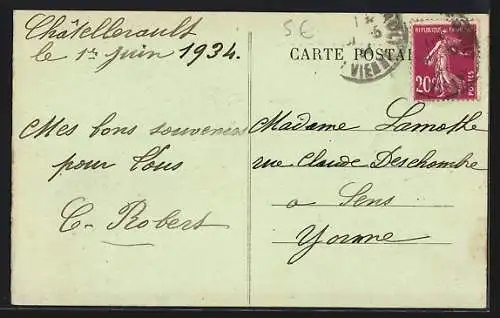 Châtellerault
le 1er juin 1934.
5€
CARTE POSTALE
VIENNE
RÉPUBLIQUE FRANÇAISE
20c
POSTES
Mes bons souvenirs
pour tous
C. Robert
Madame Lamothe
rue Claude Deschombre
a Sens
Yonne